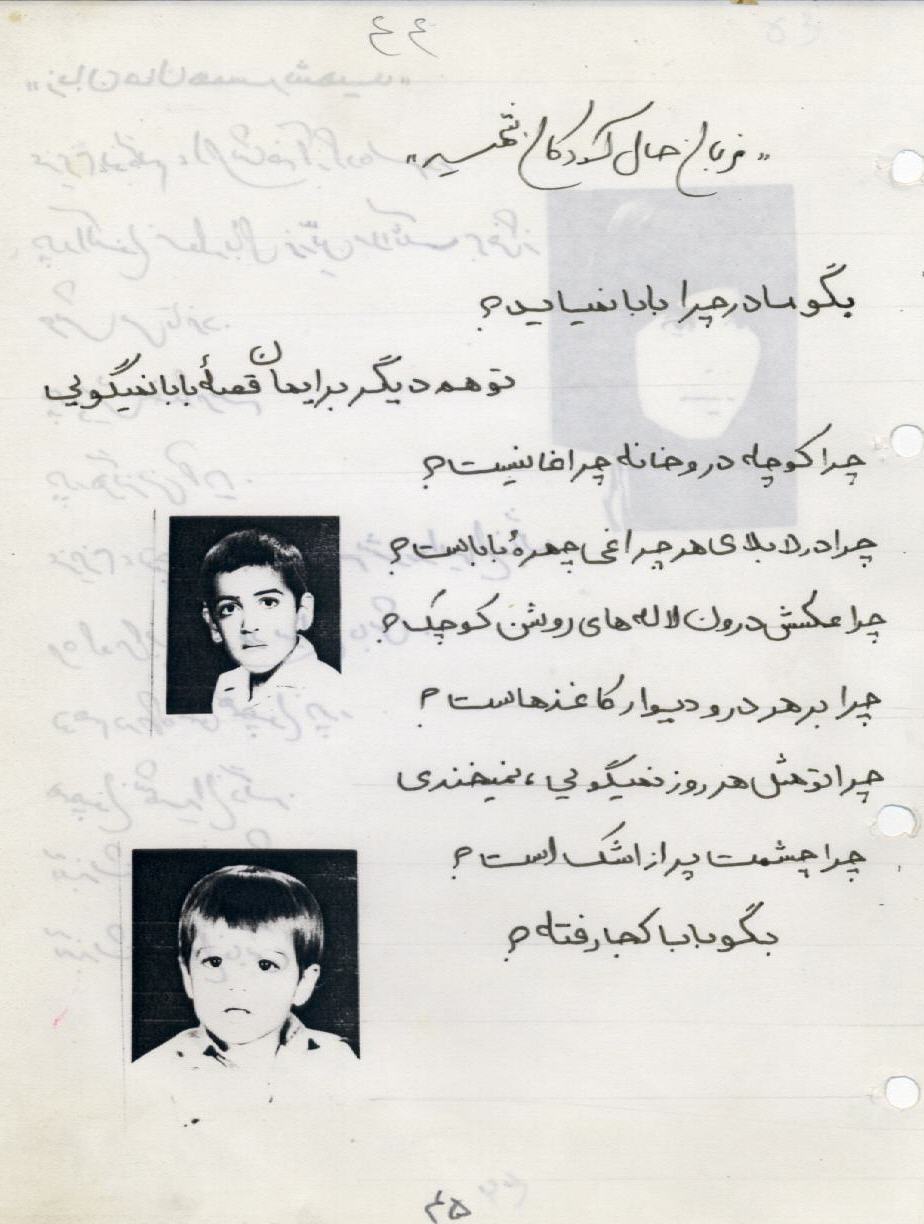 ۴۴
«زبان حال کودکان شهید»
بگو مادر چرا بابا نمیاید؟
تو هم دیگر برایمان قصهٔ بابا نمیگویی
چرا کوچه در و خانه چراغانیست؟
چرا در لابلای هر چراغی چهرهٔ باباست؟
چرا عکسش درون لاله های روشن کوچک؟
چرا بر هر در و دیوار کاغذهاست؟
چرا تو مثل هر روز نمیگویی، نمیخندی
چرا چشمت پر از اشک است؟
بگو بابا کجا رفته؟
۴۵